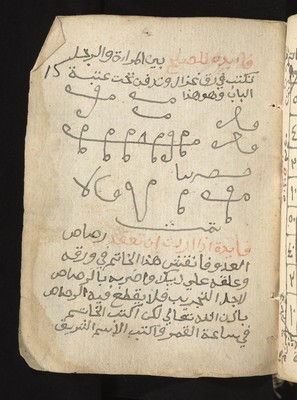 فايدة للصلح بين المرارة والرجل
تكتب في رق غزال وتدفن تحت عتبة
الباب وهو هذا
تمت
فايدة اذا اردت ان تعقد رصاص
العدو فانقش هذا الخاتم في ورقه
وعلقه على ديك واضربه بالرصاص
لاجل التجريب فلا يقطع فيه الرصاص
باذن الله تعالى لكن اكتب الخاتم
في ساعة القمر واكتب الاسم الشريف